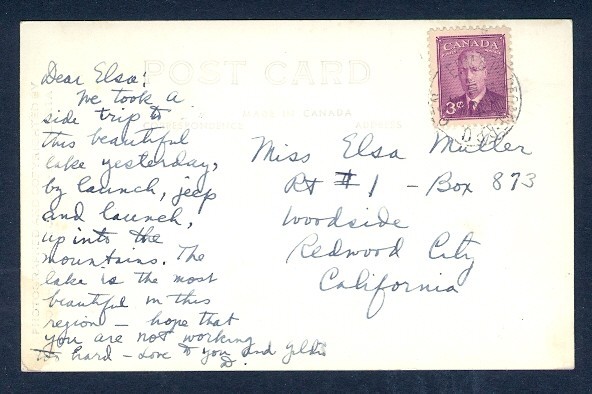 POST CARD
MADE IN CANADA
CORRESPONDENCE ADDRESS
CANADA
3¢
Dear Elsa:
We took a
side trip to
this beautiful
lake yesterday,
by launch, jeep
and launch,
up into the
mountains. The
lake is the most
beautiful in this
region – hope that
you are not working
too hard – Love to you and
Miss Elsa Muller
Rt #1 – Box 873
Woodside
Redwood City
California